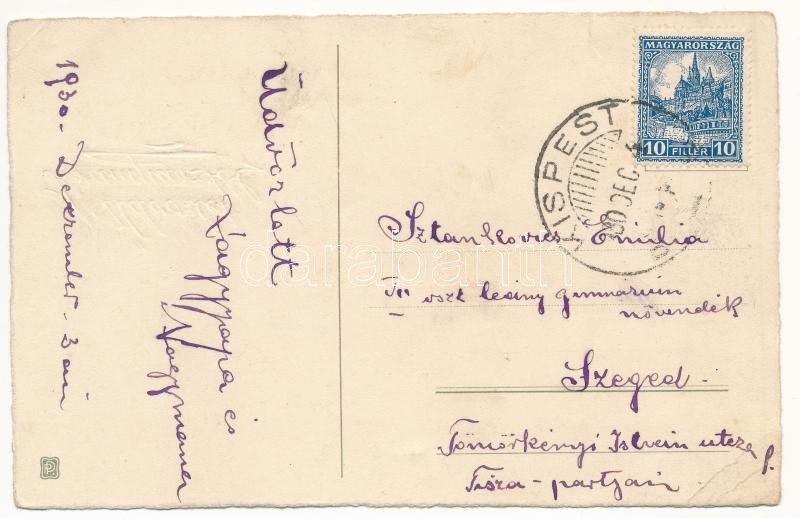 1930. December 3 án
Üdvözlett
Nagypapa és
Nagymama
MAGYARORSZÁG
10 FILLÉR 10
KISPEST
DEC
Sztankovics Emilia
oszt leány gimnazium
növendék
Szeged.
Tömörkényi István utcza
Tisza - partjain
darabanth